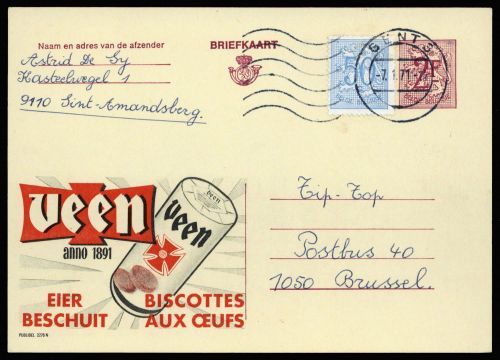 Naam en adres van de afzender
Astrid De Gy
Kasteelwegel 1
9110 Sint-Amandsberg.
BRIEFKAART
50
2F
GENT
-7.1.71
Tip-Top
Postbus 40
1050 Brussel.
veen
anno 1891
veen
EIER
BESCHUIT
BISCOTTES
AUX ŒUFS
PUBLIBEL 2276 N